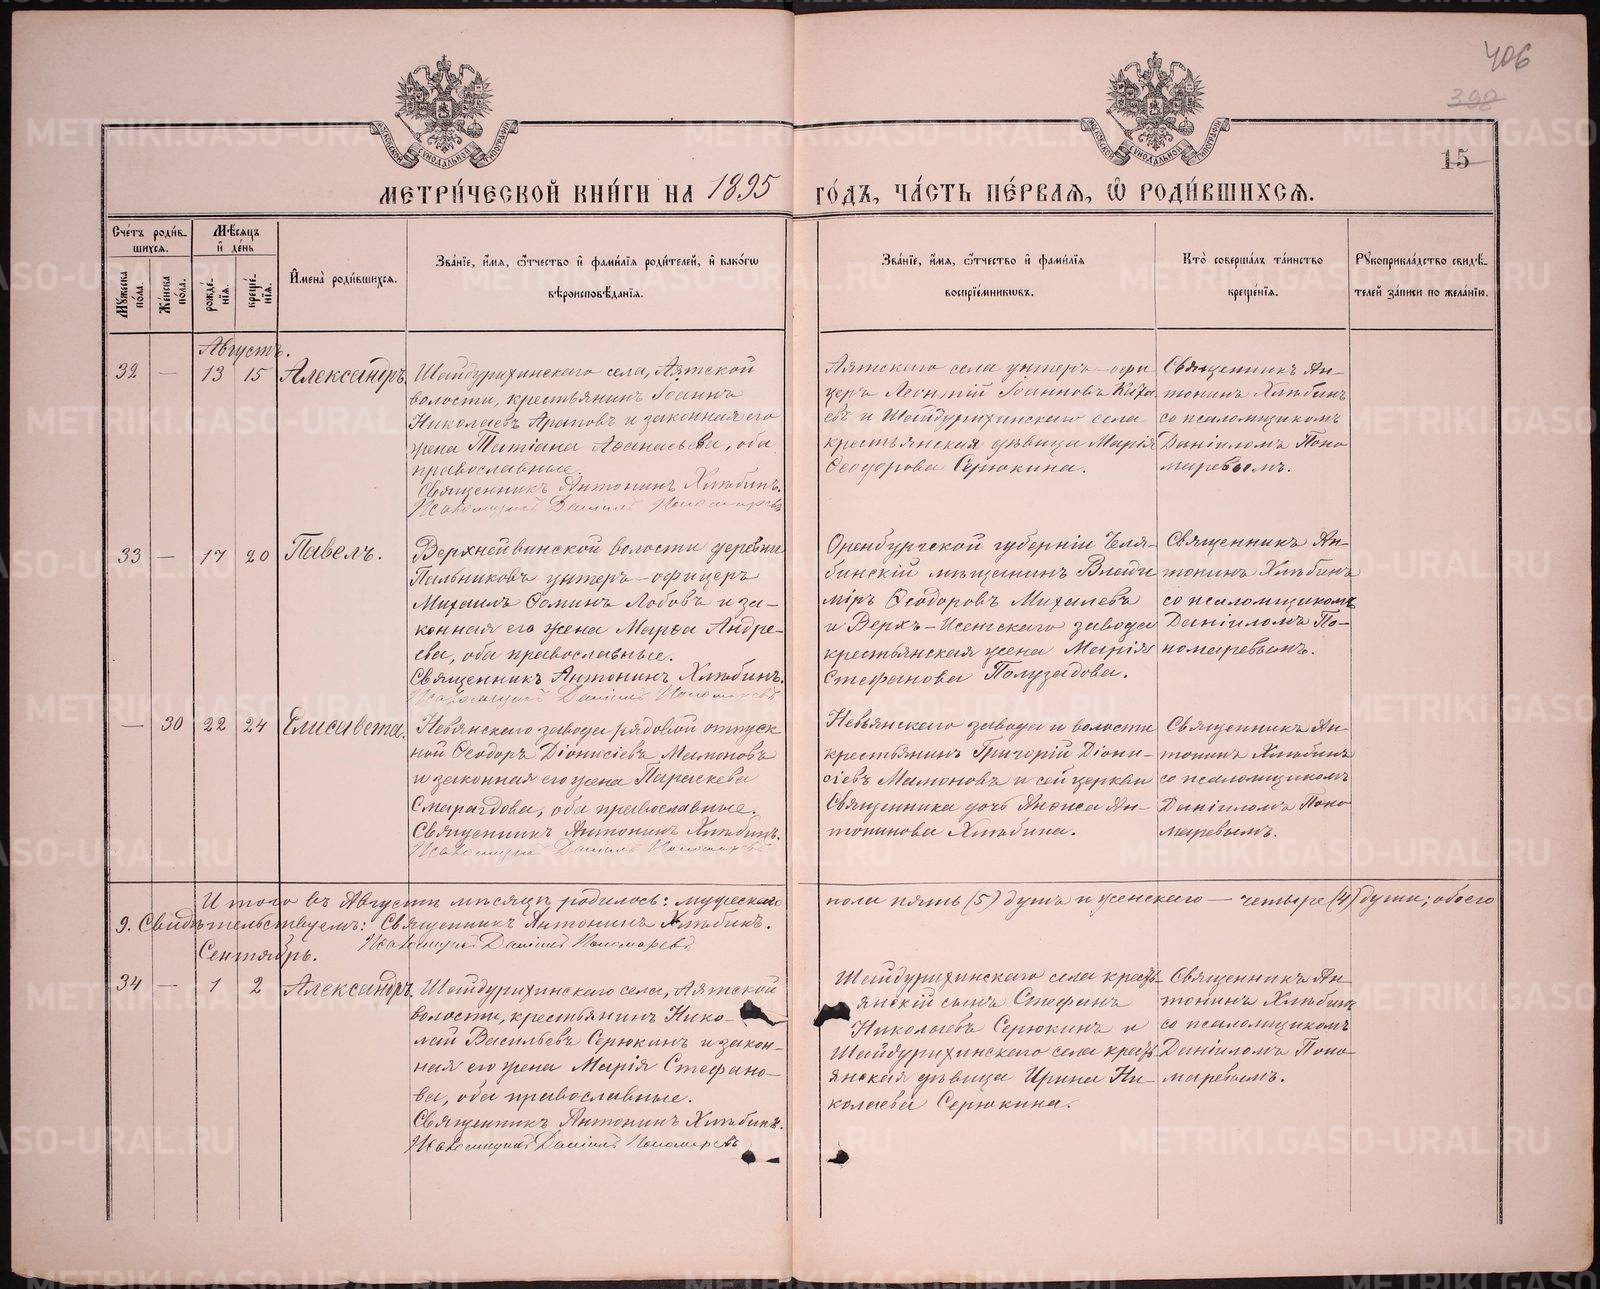 406
398
15
МЕТРИ́ЧЕСКОЙ КНИ́ГИ НА 1895 ГО́ДЪ, ЧА́СТЬ ПЕ́РВАЯ, Ѽ РОДИ́ВШИХСЯ.
Сче́тъ роди́в-
шихся.
Мѣ́сяцъ
и҆ де́нь
Мꙋ́жеска по́ла.
Же́нска по́ла.
рожде́-
нїя.
креще́-
нїя.
И҆мена̀ роди́вшихся.
Зва́нїе, и҆́мя, ѻ҆́тчество и҆ фами́лїя роди́телей, и҆ како́гѡ
вѣроисповѣ́данїя.
Зва́нїе, и҆́мя, ѻ҆́тчество и҆ фами́лїя
воспрїе́мникѡвъ.
Кто̀ соверша́лъ та́инство
креще́нїя.
Рꙋкоприкла́дство свидѣ́-
телей за́писи по жела́нїю.
Августъ.
32 — 13 15 Александръ.
Шайдурихинскаго села, Аятской
волости, крестьянинъ Іоаннъ
Николаевъ Араповъ и законная его
жена Татіана Аѳанасьева, оба
православные.
Священникъ Антонинъ Хлѣбинъ.
Псаломщикъ Даніилъ Пономаревъ
Аятскаго села унтеръ-офи
церъ Леонтій Іоанновъ
евъ и Шайдурихинскаго села
крестьянская дѣвица Марія
Ѳеодорова Серюкина.
Священникъ Ан-
тонинъ Хлѣбинъ
со псаломщикомъ
Даніиломъ Поно
маревымъ.
33 — 17 20 Павелъ.
Верхнейвинской волости деревни
Пальниковъ унтеръ-офицеръ
Михаилъ Ѳоминъ Лобовъ и за-
конная его жена Марѳа Андре-
ева, оба православные.
Священникъ Антонинъ Хлѣбинъ.
Псаломщикъ Даніилъ Пономаревъ
Оренбургской губерніи Челя-
бинскій мѣщанинъ Влади
міръ Ѳеодоровъ Михалевъ
и Верхъ-Исетскаго завода
крестьянская жена Марія
Стефанова Полузадова.
Священникъ Ан-
тонинъ Хлѣбинъ
со псаломщикомъ
Даніиломъ По-
номаревымъ.
— 30 22 24 Елисавета.
Невьянскаго завода рядовой отпуск
ной Ѳеодоръ Діонисіевъ Мамоновъ
и законная его жена Параскева
Смарагдова, оба православные.
Священникъ Антонинъ Хлѣбинъ.
Псаломщикъ Даніилъ Пономаревъ
Невьянскаго завода и волости
крестьянинъ Григорій Діони-
сіевъ Мамоновъ и сей церкви
Священника дочь Анѳиса Ан-
тонинова Хлѣбина.
Священникъ Ан-
тонинъ Хлѣбинъ
со псаломщикомъ
Даніиломъ Поно
маревымъ.
Итого въ Августѣ мѣсяцѣ родилось: мужескаго пола пять (5) душъ и женскаго — четыре (4) души; обоего
9. Свидѣтельствуемъ: Священникъ Антонинъ Хлѣбинъ.
Псаломщикъ Даніилъ Пономаревъ
Сентябрь.
34 — 1 2 Александръ.
Шайдурихинскаго села, Аятской
волости, крестьянинъ Нико-
лай Васильевъ Серюкинъ и закон-
ная его жена Марія Стефано-
ва, оба православные.
Священникъ Антонинъ Хлѣбинъ.
Псаломщикъ Даніилъ Пономаревъ
Шайдурихинскаго села кресть
янскій сынъ Стефанъ
Николаевъ Серюкинъ и
Шайдурихинскаго села кресть-
янская дѣвица Ирина Ни-
колаева Серюкина.
Священникъ Ан-
тонинъ Хлѣбинъ
со псаломщикомъ
Даніиломъ Поно-
маревымъ.
METRIKI.GASO-URAL.RU